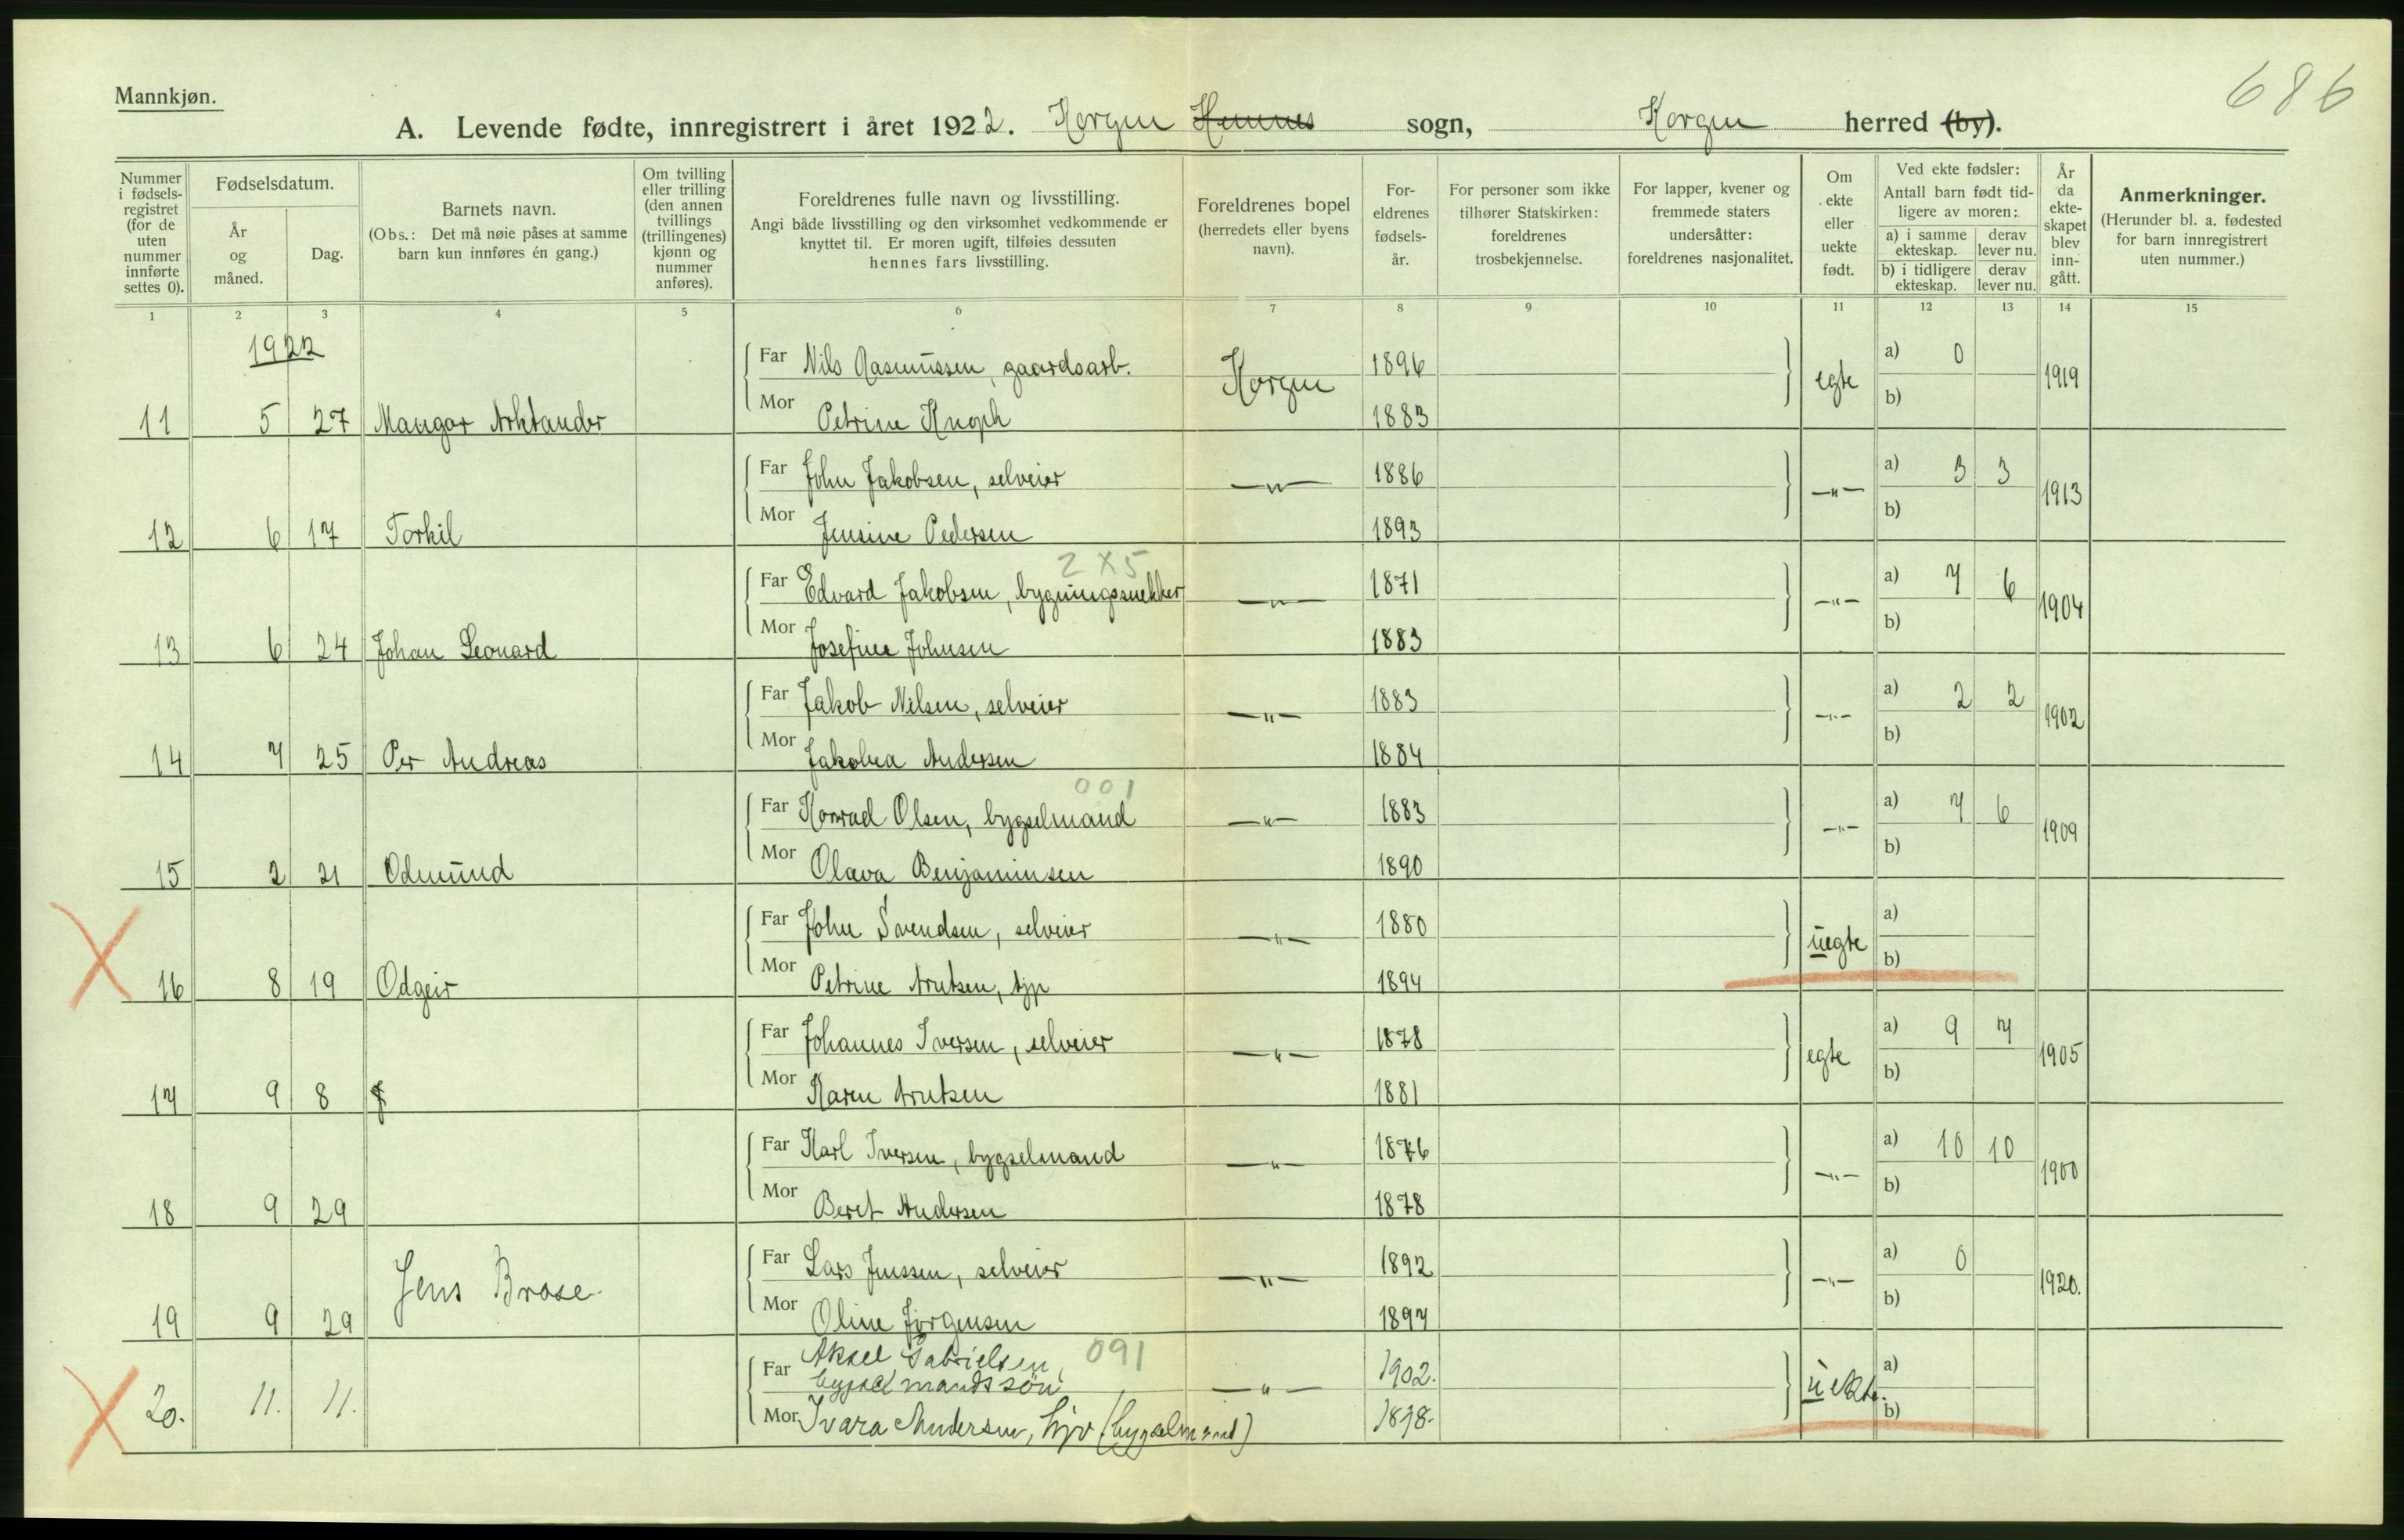 686
Mannkjøn.
A. Levende fødte, innregistrert i året 1922. Korgen Hemnes sogn, Korgen herred (by).
Nummer i fødsels-registret (for de uten nummer innførte settes 0).
Fødselsdatum.
År og måned.
Dag.
Barnets navn.
(Obs.: Det må nøie påses at samme barn kun innføres én gang.)
Om tvilling eller trilling (den annen tvillings (trillingenes) kjønn og nummer anføres).
Foreldrenes fulle navn og livsstilling.
Angi både livsstilling og den virksomhet vedkommende er knyttet til. Er moren ugift, tilføies dessuten hennes fars livsstilling.
Foreldrenes bopel (herredets eller byens navn).
For-eldrenes fødsels-år.
For personer som ikke tilhører Statskirken: foreldrenes trosbekjennelse.
For lapper, kvener og fremmede staters undersåtter: foreldrenes nasjonalitet.
Om ekte eller uekte født.
Ved ekte fødsler:
Antall barn født tid-ligere av moren:
a) i samme ekteskap. derav lever nu.
b) i tidligere ekteskap. derav lever nu.
År da ekte-skapet blev inn-gått.
Anmerkninger.
(Herunder bl. a. fødested for barn innregistrert uten nummer.)
1 2 3 4 5 6 7 8 9 10 11 12 13 14 15
1922
Far Nils Rasmussen, gaardsarb. Korgen 1896 egte a) 0 1919
11 5 27 Mangor Arktander Mor Petrine Knoph 1883 b)
Far John Jakobsen, selveier —"— 1886 —"— a) 3 3 1913
12 6 17 Torkil Mor Jensine Pedersen 1893 b)
2 X 5
Far Edvard Jakobsen, bygningssnekker —"— 1871 —"— a) 7 6 1904
13 6 24 Johan Leonard Mor Josefine Johnsen 1883 b)
Far Jakob Nilsen, selveier —"— 1883 —"— a) 2 2 1902
14 7 25 Per Andreas Mor Jakobea Andersen 1884 b)
001
Far Konrad Olsen, bygselmand —"— 1883 —"— a) 7 6 1909
15 2 21 Odmund Mor Olava Benjaminsen 1890 b)
Far John Svendsen, selveier —"— 1880 uegte a)
16 8 19 Odgeir Mor Petrine Arntsen, tjp 1894 b)
Far Johannes Iversen, selveier —"— 1878 egte a) 9 7 1905
17 9 8 Mor Karen Arntsen 1881 b)
Far Karl Iversen, bygselmand —"— 1876 —"— a) 10 10 1900
18 9 29 Mor Beret Andersen 1878 b)
Far Lars Jenssen, selveier —"— 1892 —"— a) 0 1920.
19 9 29 Jens Brose Mor Oline Jørgensen 1897 b)
Aksel Gabrielsen, 091
Far bygselmandssøn —"— 1902. uekte. a)
20. 11. 11. Mor Ivara Andersen, (bygselmand) 1898. b)